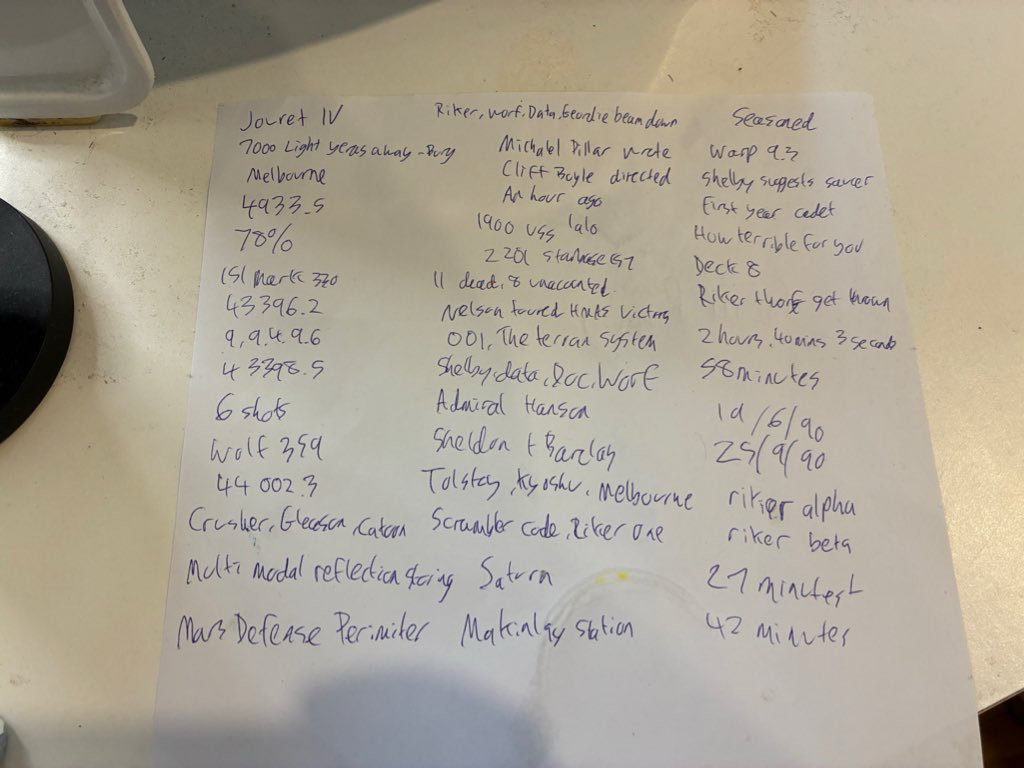 Jouret IV
7000 Light yeras away - Borg
Melbourne
4933.5
78%
151 mark 330
43396.2
9, 9.4 9.6
43398.5
6 shots
Wolf 359
44 002.3
Crusher, Gleason,
Multi modal reflection
Mars Defense Perimiter
Riker, worf, Data, Geordie beam down
Michael Pillar wrote
Cliff Boyle directed
An hour ago
1900 USS lalo
2201 starbase 157
11 dead, 8 unaccounted
Nelson toured HMS Victory
001, The terran system
Shelby, data, Doc, Worf
Admiral Hanson
Sheldon + Barclay
Tolstoy, Kyoshu, Melbourne
Scrambler code, Riker one
Saturn
Mckinlay station
Seasoned
Warp 9.3
Shelby suggests saucer
First year cadet
How terrible for you
Deck 8
Riker get
2 hours, 40 mins 3 seconds
58 minutes
19/6/90
25/9/90
riker alpha
riker beta
27 minutes
42 minutes